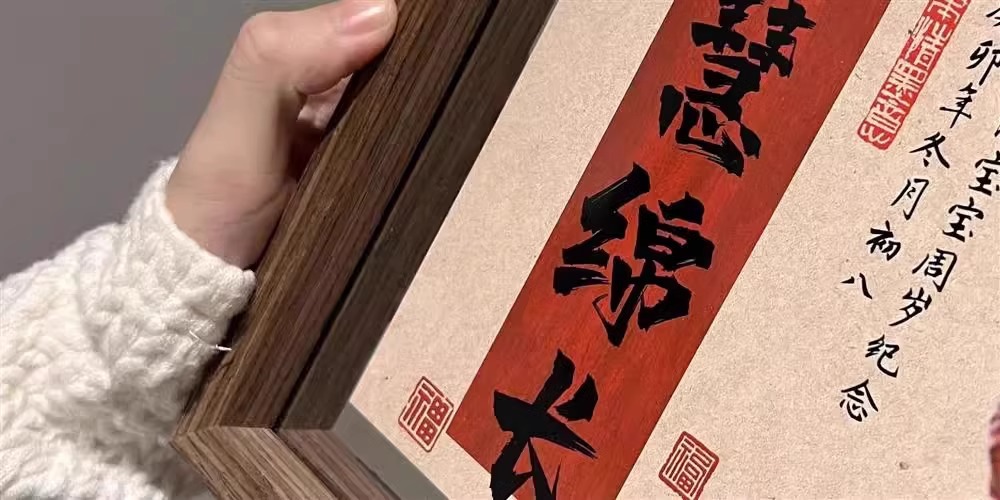 慧绵长
宝宝周岁纪念
卯年冬月初八
福
福